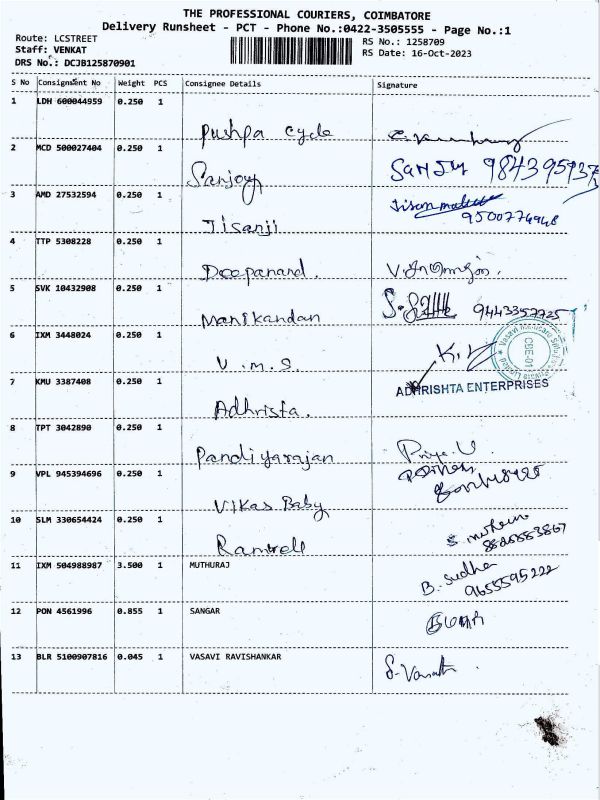 THE PROFESSIONAL COURIERS, COIMBATORE
Delivery Runsheet - PCT - Phone No.:0422-3505555 - Page No.:1
Route: LCSTREET
RS No.: 1258709
Staff: VENKAT
RS Date: 16-Oct-2023
DRS No.: DCJB125870901
S No Consignment No Weight PCS Consignee Details Signature
1 LDH 600044959 0.250 1
Pushpa Cycle
2 MCD 500027404 0.250 1
Sanjoy
3 AMD 27532594 0.250 1
9500774948
Jisanji
4 TTP 5308228 0.250 1
Deepanand.
5 SVK 10432908 0.250 1
Manikandan
6 IXM 3448024 0.250 1
V.M.S.
7 KMU 3387408 0.250 1
ADHRISHTA ENTERPRISES
Adhrista.
8 TPT 3042890 0.250 1
Pandiyarajan Priya.U
9 VPL 945394696 0.250 1
Vikas Baby
10 SLM 330654424 0.250 1
Ramwell
11 IXM 504988987 3.500 1 MUTHURAJ
B. Sudha
9655595222
12 PON 4561996 0.855 1 SANGAR
13 BLR 5100907816 0.045 1 VASAVI RAVISHANKAR